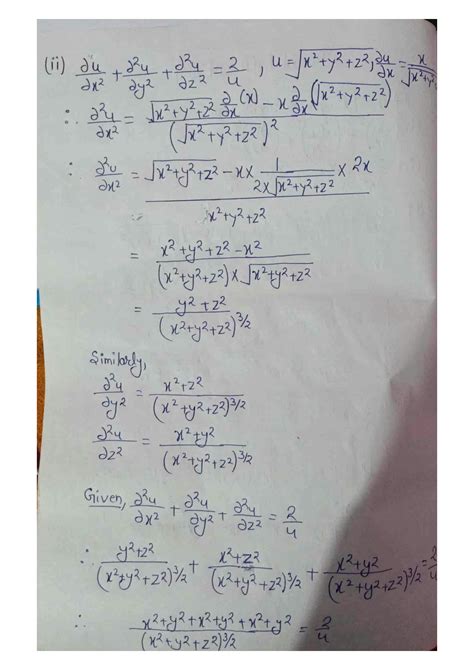 (ii) ∂u/∂x² + ∂²u/∂y² + ∂²u/∂z² = 2/u , u = √x²+y²+z² , ∂u/∂x = x/√x²+y²+z²
∴ ∂²u/∂x² = √x²+y²+z² ∂/∂x (x) − x ∂/∂x (√x²+y²+z²) / (√x²+y²+z²)²
∴ ∂²u/∂x² = √x²+y²+z² − x × 1/2×√x²+y²+z² × 2x / x²+y²+z²
= x²+y²+z² −x² / (x²+y²+z²) × √x²+y²+z²
= y²+z² / (x²+y²+z²)^3/2
Similarly,
∂²u/∂y² = x²+z² / (x²+y²+z²)^3/2
∂²u/∂z² = x²+y² / (x²+y²+z²)^3/2
Given, ∂²u/∂x² + ∂²u/∂y² + ∂²u/∂z² = 2/u
∴ y²+z²/(x²+y²+z²)^3/2 + x²+z²/(x²+y²+z²)^3/2 + x²+y²/(x²+y²+z²)^3/2 = 2/u
∴ x²+y²+x²+y²+x²+y² / (x²+y²+z²)^3/2 = 2/u